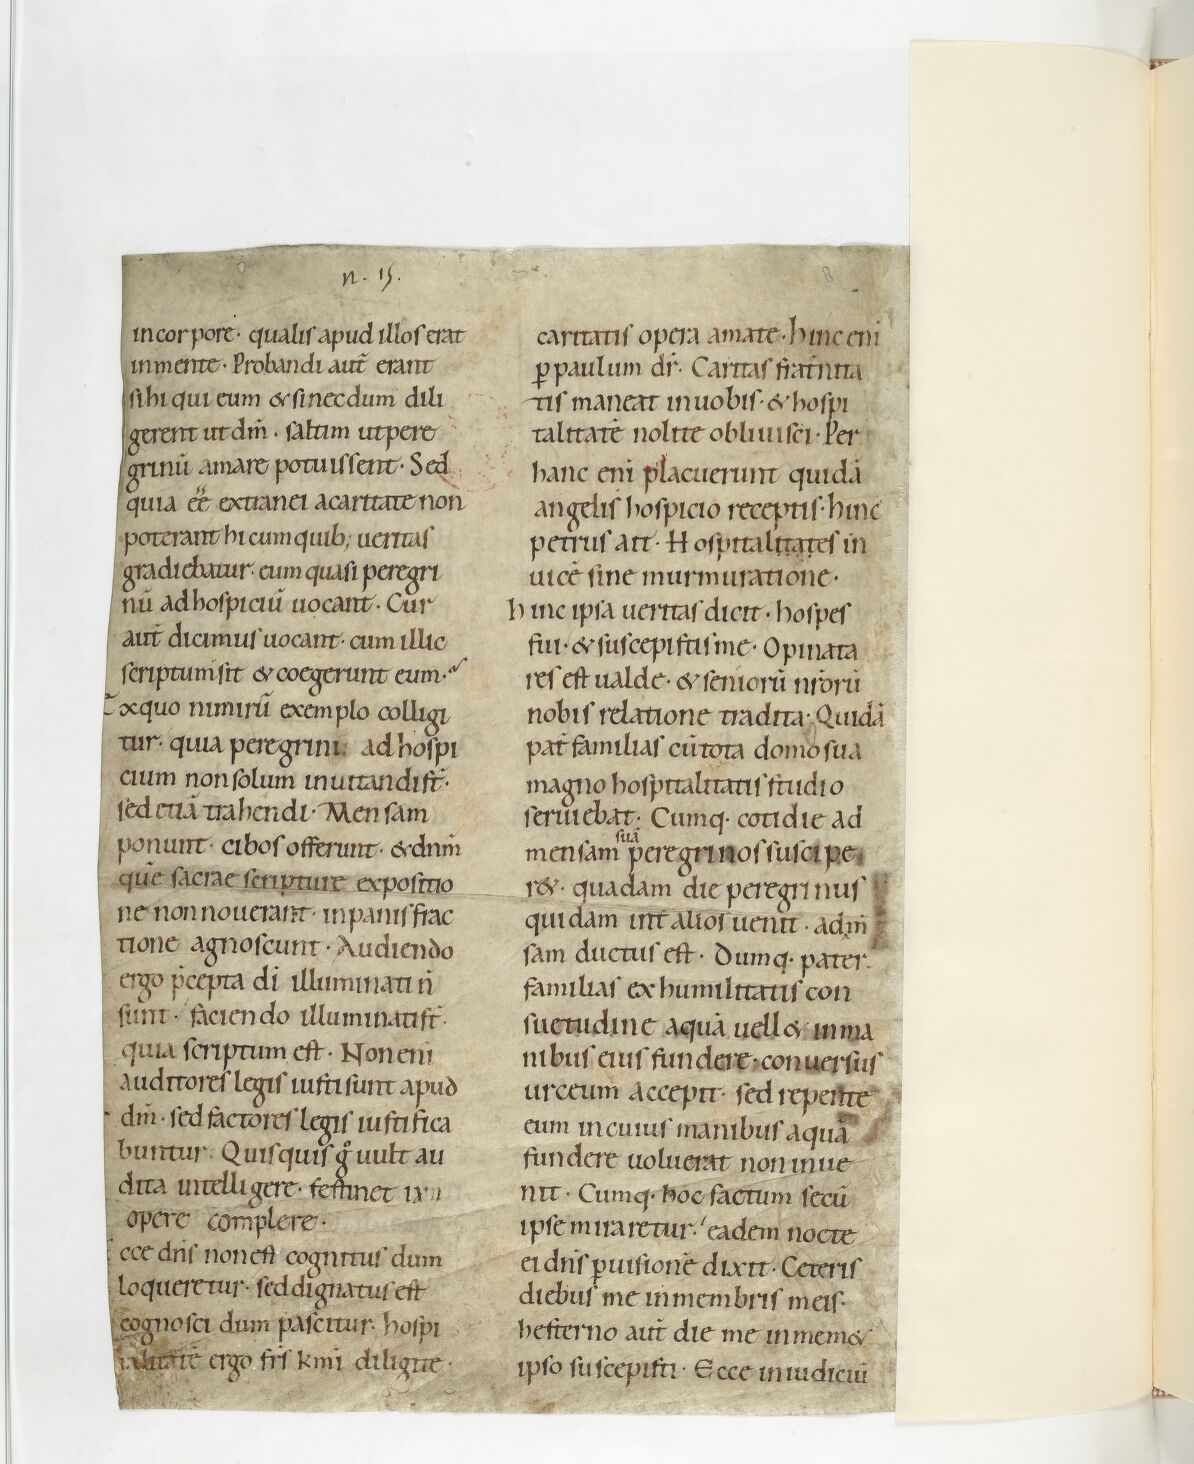 n. 15.
in corpore· qualis apud illos erat
in mente· Probandi aut̄ erant
si hi qui eum & si necdum dili
gerent ut dm̄· saltim ut pere
grinū amare potuissent· Sed
quia eē extranei a caritate non
poterant hi cum quib; ueritas
gradiebatur· eum quasi peregri
nū ad hospiciū uocant· Cur
aut̄ dicimus uocant· cum illic
scriptum sit & coegerunt eum·
Ex quo nimirū exemplo colligi
tur· quia peregrini ad hospi
cium non solum inuitandi st̄·
sed etiā trahendi· Mensam
ponunt· cibos offerunt· & dnm̄
quē sacrae scripture expositio
ne non nouerant· in panis frac
tione agnoscunt· Audiendo
ergo p̄cepta dī illuminati n̄
sunt· faciendo illuminati st̄·
quia scriptum est· Non enī
auditores legis iusti sunt apud
dm̄· sed factores legis iustifica
buntur· Quisquis gͦ uult au
dita intelligere· festinet
opere complere·
cce dns̄ non est cognitus dum
loqueretur· sed dignatus est
cognosci dum pascitur· hospi
talitatē ergo frs̄ kmī diligite·
caritatis opera amate· hinc enī
ꝑ paulum dr̄· Caritas frat̄nita
tis maneat in uobis· & hospi
talitatē nolite obliuisci· Per
hanc enī placuerunt quidā
angelis hospicio receptis· hinc
petrus ait· Hospitalitates in
uicē sine murmuratione·
hinc ipsa ueritas dicit· hospes
fui· & suscepistis me· Opinata
res est ualde· & seniorū nr̄orū
nobis relatione tradita· Quidā
pat̄familias cū tota domo sua
magno hospitalitatis studio
seruiebat· Cumq· cotidie ad
mensam suā peregrinos suscipe
r&· quadam die peregrinus
quidam int̄ alios uenit· ad m̄
sam ductus est· Dumq· pater
familias ex humilitatis con
suetudine aquā uell& in ma
nibus eius fundere· conuersus
urceum accepit· sed repente
eum in cuius manibus aquā
fundere uoluerat non inue
nit· Cumq· hoc factum secū
ipse miraretur· eadem nocte
ei dns̄ ꝑ uisionē dixit· Ceteris
diebus me in membris meis·
hesterno aut̄ die me in mem&
ipso suscepisti· Ecce in iudiciū